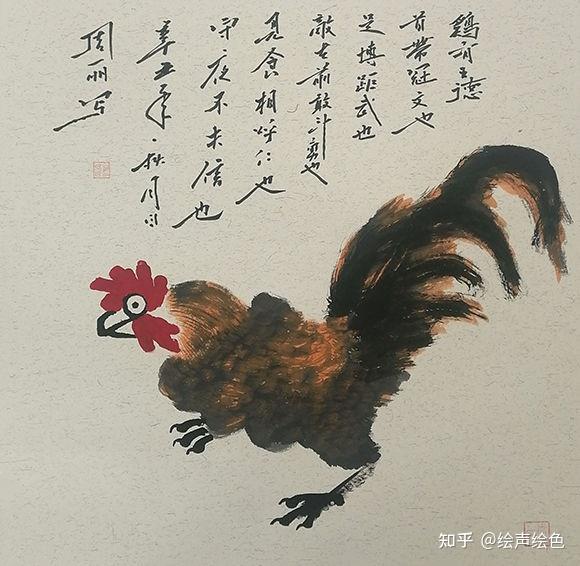 鷄有五德
首帶冠文也
足博距武也
敵在前敢斗勇也
見食相呼仁也
守夜不失信也
辛丑年秋月日
周丽写
知乎 @绘声绘色